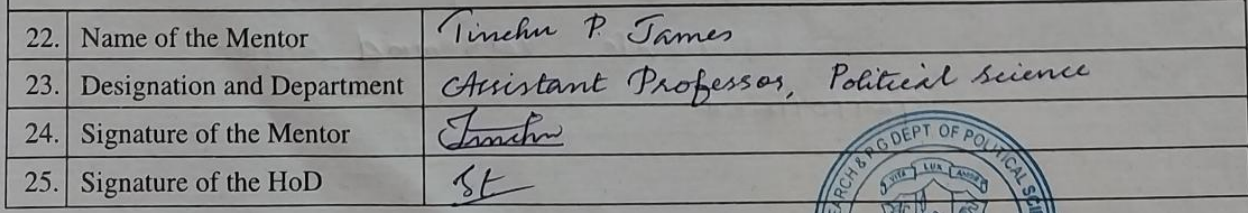 22. Name of the Mentor Tinchu P. James
23. Designation and Department Assistant Professor, Political Science
24. Signature of the Mentor Tinchu
25. Signature of the HoD
ARCH & PG DEPT OF POLITICAL SCI
VITA LUX AMOR